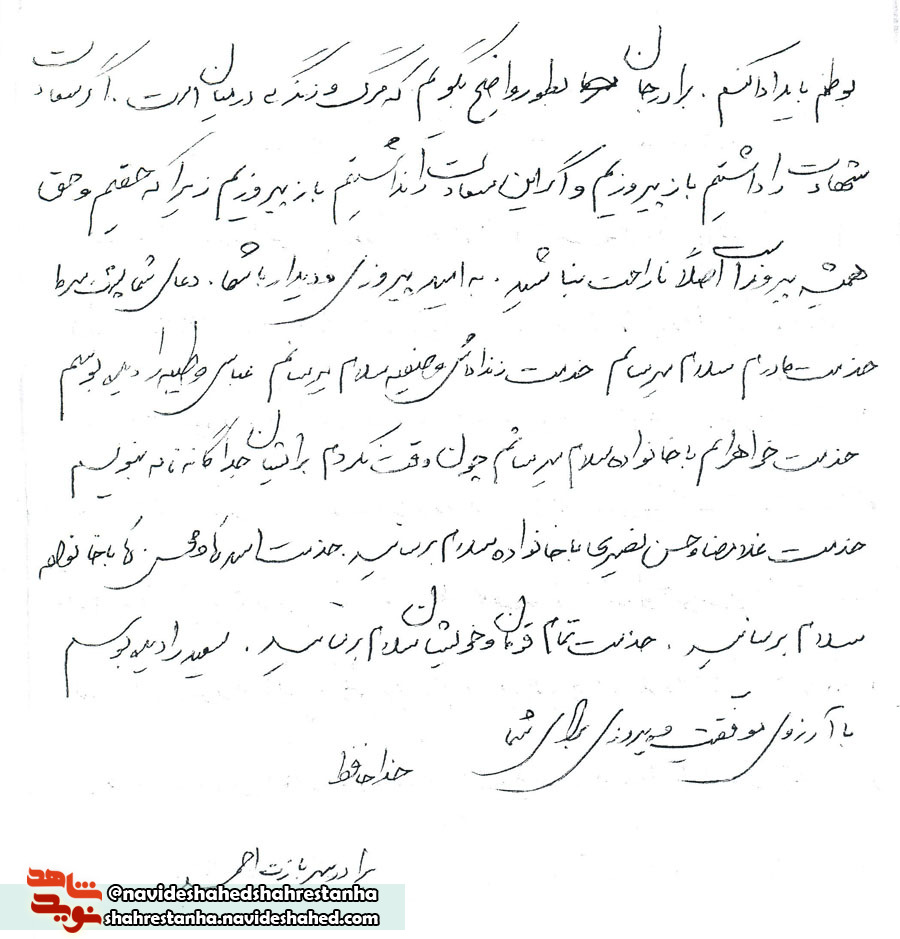 بوطنم باید ادا کنم . برادر جان بطور واضح بگویم که مرگ و زندگی در میان است . اگر سعادت
شهادت را داشتیم باز پیروزیم و اگر این سعادت را نداشتیم باز پیروزیم زیرا که حقیم و حق
همیشه پیروز است اصلاً ناراحت نباشید . به امید پیروزی و دیدار با شما . دعای شما
خدمت مادرم سلام میرسانم خدمت زنداداش و سلام میرسانم عباس و را دیده بوسم
خدمت خواهرانم با خانواده سلام میرسانم چون وقت نکردم برایشان جداگانه نامه بنویسم
خدمت غلامرضا و حسن نصیری با خانواده سلام برسانید . خدمت و با خانواده
سلام برسانید . خدمت تمام قومان و خویشان سلام برسانید . سعید را دیده بوسم
با آرزوی موفقیت و پیروزی برای شما
خداحافظ
برادر سربازت احمد
شاهد
نوید
@navideshahedshahrestanha
shahrestanha.navideshahed.com